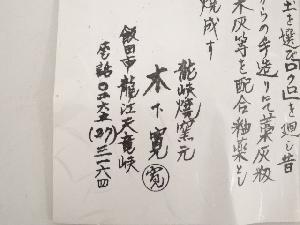 土を選びロクロを廻し昔
からの手造りにて藁灰
木灰等を配合釉薬とし
焼成す
龍峡焼窯元
木下寛 寛
飯田市龍江天竜峡
電話〇二六五(27)三一六四